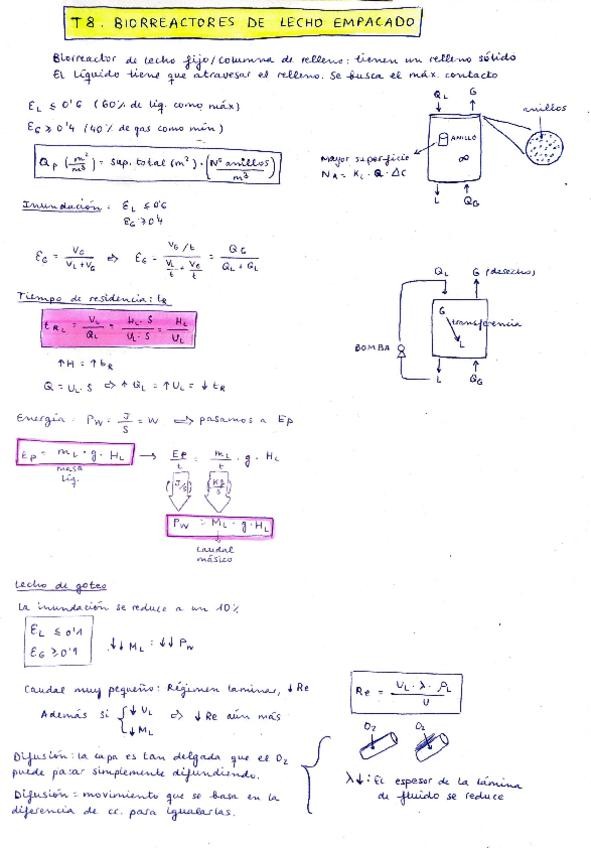 T8. BIORREACTORES DE LECHO EMPACADO
Biorreactor de lecho fijo/columna de relleno: tienen un relleno sólido
El líquido tiene que atravesar el relleno. Se busca el máx. contacto
ƐL ≤ 0'6 (60% de líq. como máx)
ƐG ≥ 0'4 (40% de gas como mín)
Qp (m²/m³) = sup. total (m²) · (Nº anillos/m³)
QL G
anillos
ANILLO
∞
L QG
Mayor superficie
NA = KL · Q · ΔC
Inundación: ƐL ≤ 0'6
ƐG ≥ 0'4
ƐG = VG/(VL+VG) ⇨ ƐG = (VG/t)/(VL/t + VG/t) = QG/(QL+QL)
Tiempo de residencia: tR
tRL = VL/QL = HL·S/UL·S = HL/UL
↑H = ↑tR
Q = UL·S ⇨ ↑QL = ↑UL = ↓tR
QL G (desecho)
G
transferencia
L
BOMBA
L QG
Energía: PW = J/S = W ⇨ pasamos a Ep
Ep = mL · g · HL → Ep/t = mL/t · g · HL
masa
líq.
(J/s) (Kg/s)
PW = ML · g · HL
caudal
másico
Lecho de goteo
La inundación se reduce a un 10%
ƐL ≤ 0'1
ƐG ≥ 0'9
↓↓ML = ↓↓PW
Caudal muy pequeño: Régimen laminar, ↓Re
Además si { ↓UL ⇨ ↓Re aún más
↓ML
Re = UL · λ · ρL/U
O2 O2
Difusión: la capa es tan delgada que el O2
puede pasar simplemente difundiendo.
Difusión = movimiento que se basa en la
diferencia de cc. para igualarlas.
λ↓: El espesor de la lámina
de fluido se reduce